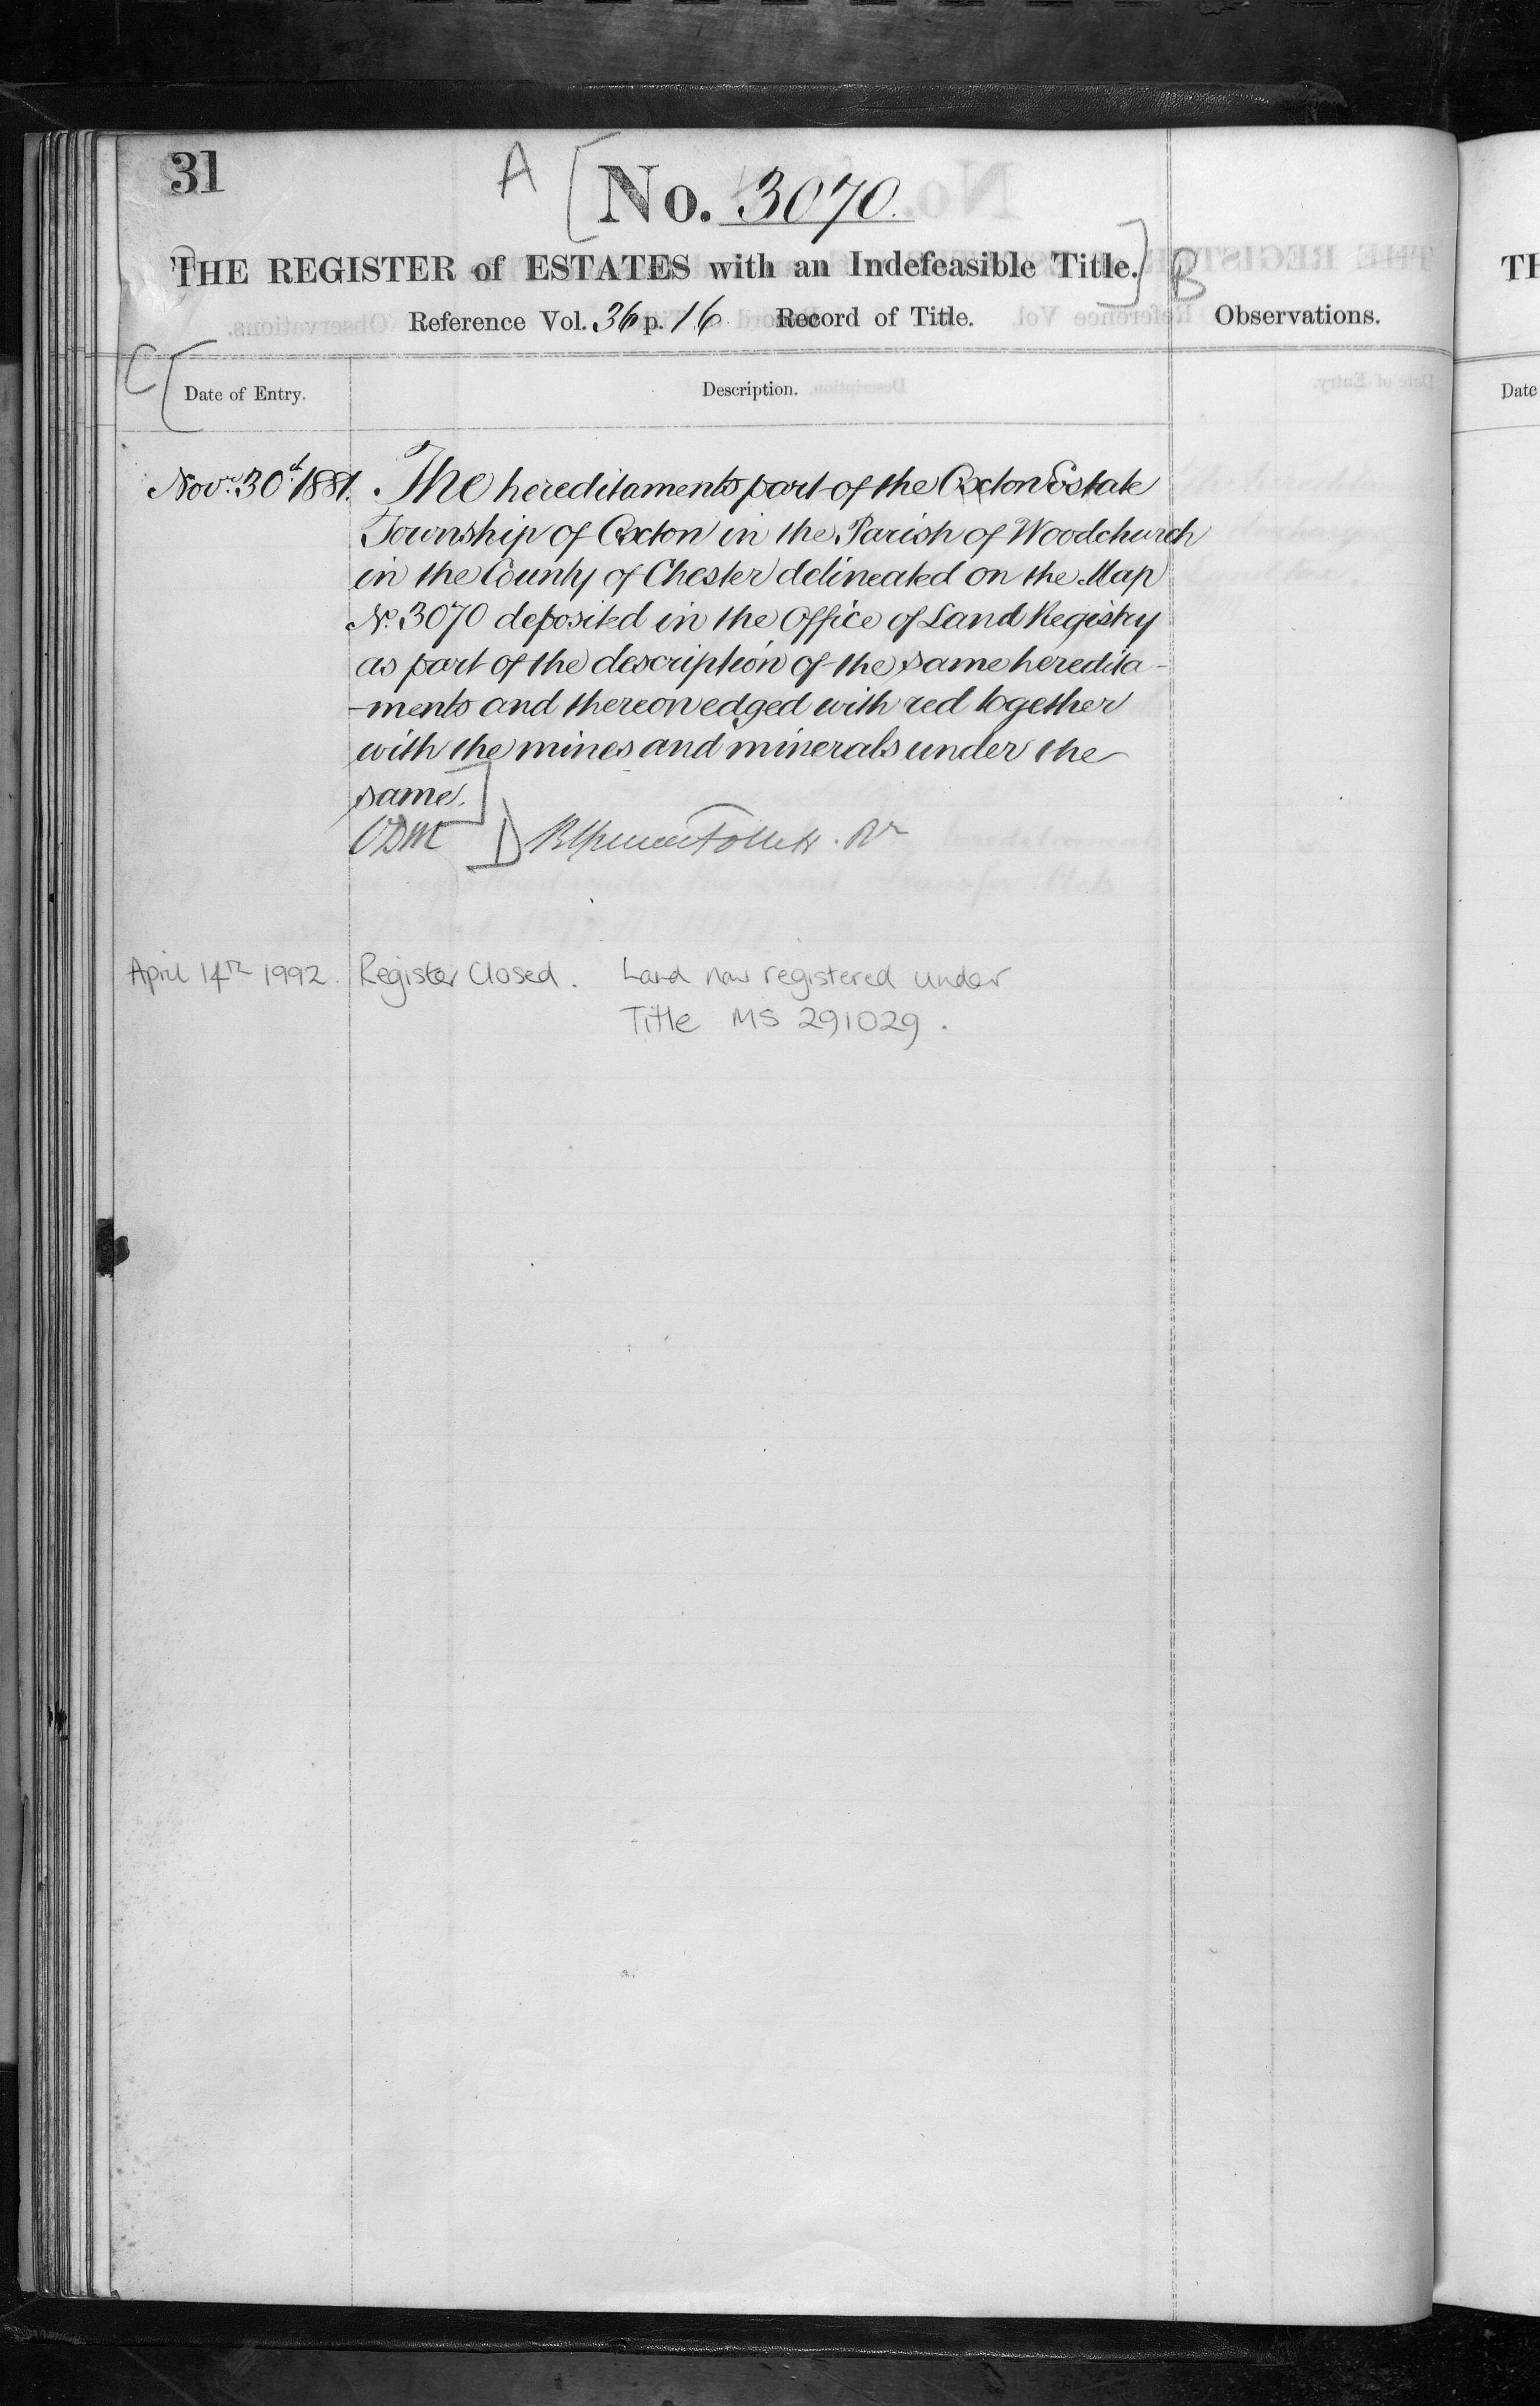 31
A [ No. 3070.
THE REGISTER of ESTATES with an Indefeasible Title. ] B
Reference Vol. 36 p. 16 Record of Title. Observations.
C [ Date of Entry. Description.
Nov.r 30th 1881. The hereditaments part of the Oxton Estate
Township of Oxton in the Parish of Woodchurch
in the County of Chester delineated on the Map
No. 3070 deposited in the Office of Land Registry
as part of the description of the same heredita-
-ments and thereon edged with red together
with the mines and minerals under the
same. ]
D
April 14th 1992. Register Closed. Land now registered under
Title MS 291029.
TH
Date